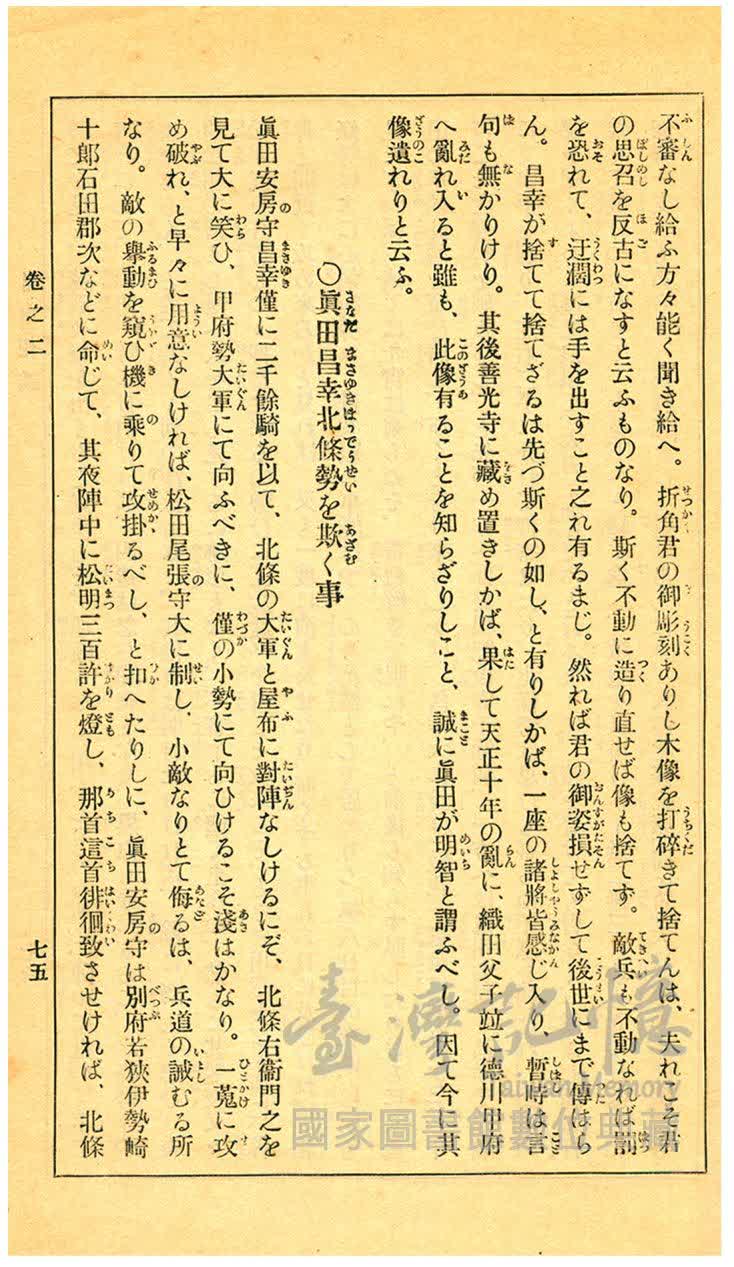 不審なし給ふ方々能く聞き給へ。折角君の御彫刻ありし木像を打碎きて捨てんは、夫れこそ君
の思召を反古になすと云ふものなり。斯く不動に造り直せば像も捨てず。敵兵も不動なれば罰
を恐れて、迂濶には手を出すこと之れ有るまじ。然れば君の御姿損せずして後世にまで傳はら
ん。昌幸が捨てて捨てざるは先づ斯くの如し、と有りしかば、一座の諸將皆感じ入り、暫時は言
句も無かりけり。其後善光寺に藏め置きしかば、果して天正十年の亂に、織田父子竝に德川甲府
へ亂れ入ると雖も、此像有ることを知らざりしこと、誠に眞田が明智と謂ふべし。因て今に其
像遺れりと云ふ。
〇眞田昌幸北條勢を欺く事
眞田安房守昌幸僅に二千餘騎を以て、北條の大軍と屋布に對陣なしけるにぞ、北條右衞門之を
見て大に笑ひ、甲府勢大軍にて向ふべきに、僅の小勢にて向ひけるこそ淺はかなり。一蒐に攻
め破れ、と早々に用意なしければ、松田尾張守大に制し、小敵なりとて侮るは、兵道の誡むる所
なり。敵の擧動を窺ひ機に乘りて攻掛るべし、と扣へたりしに、眞田安房守は別府若狹伊勢崎
十郎石田郡次などに命じて、其夜陣中に松明三百許を燈し、那首這首徘徊致させければ、北條
卷之二
七五
臺灣記憶
Taiwan Memory
國家圖書館數位典藏